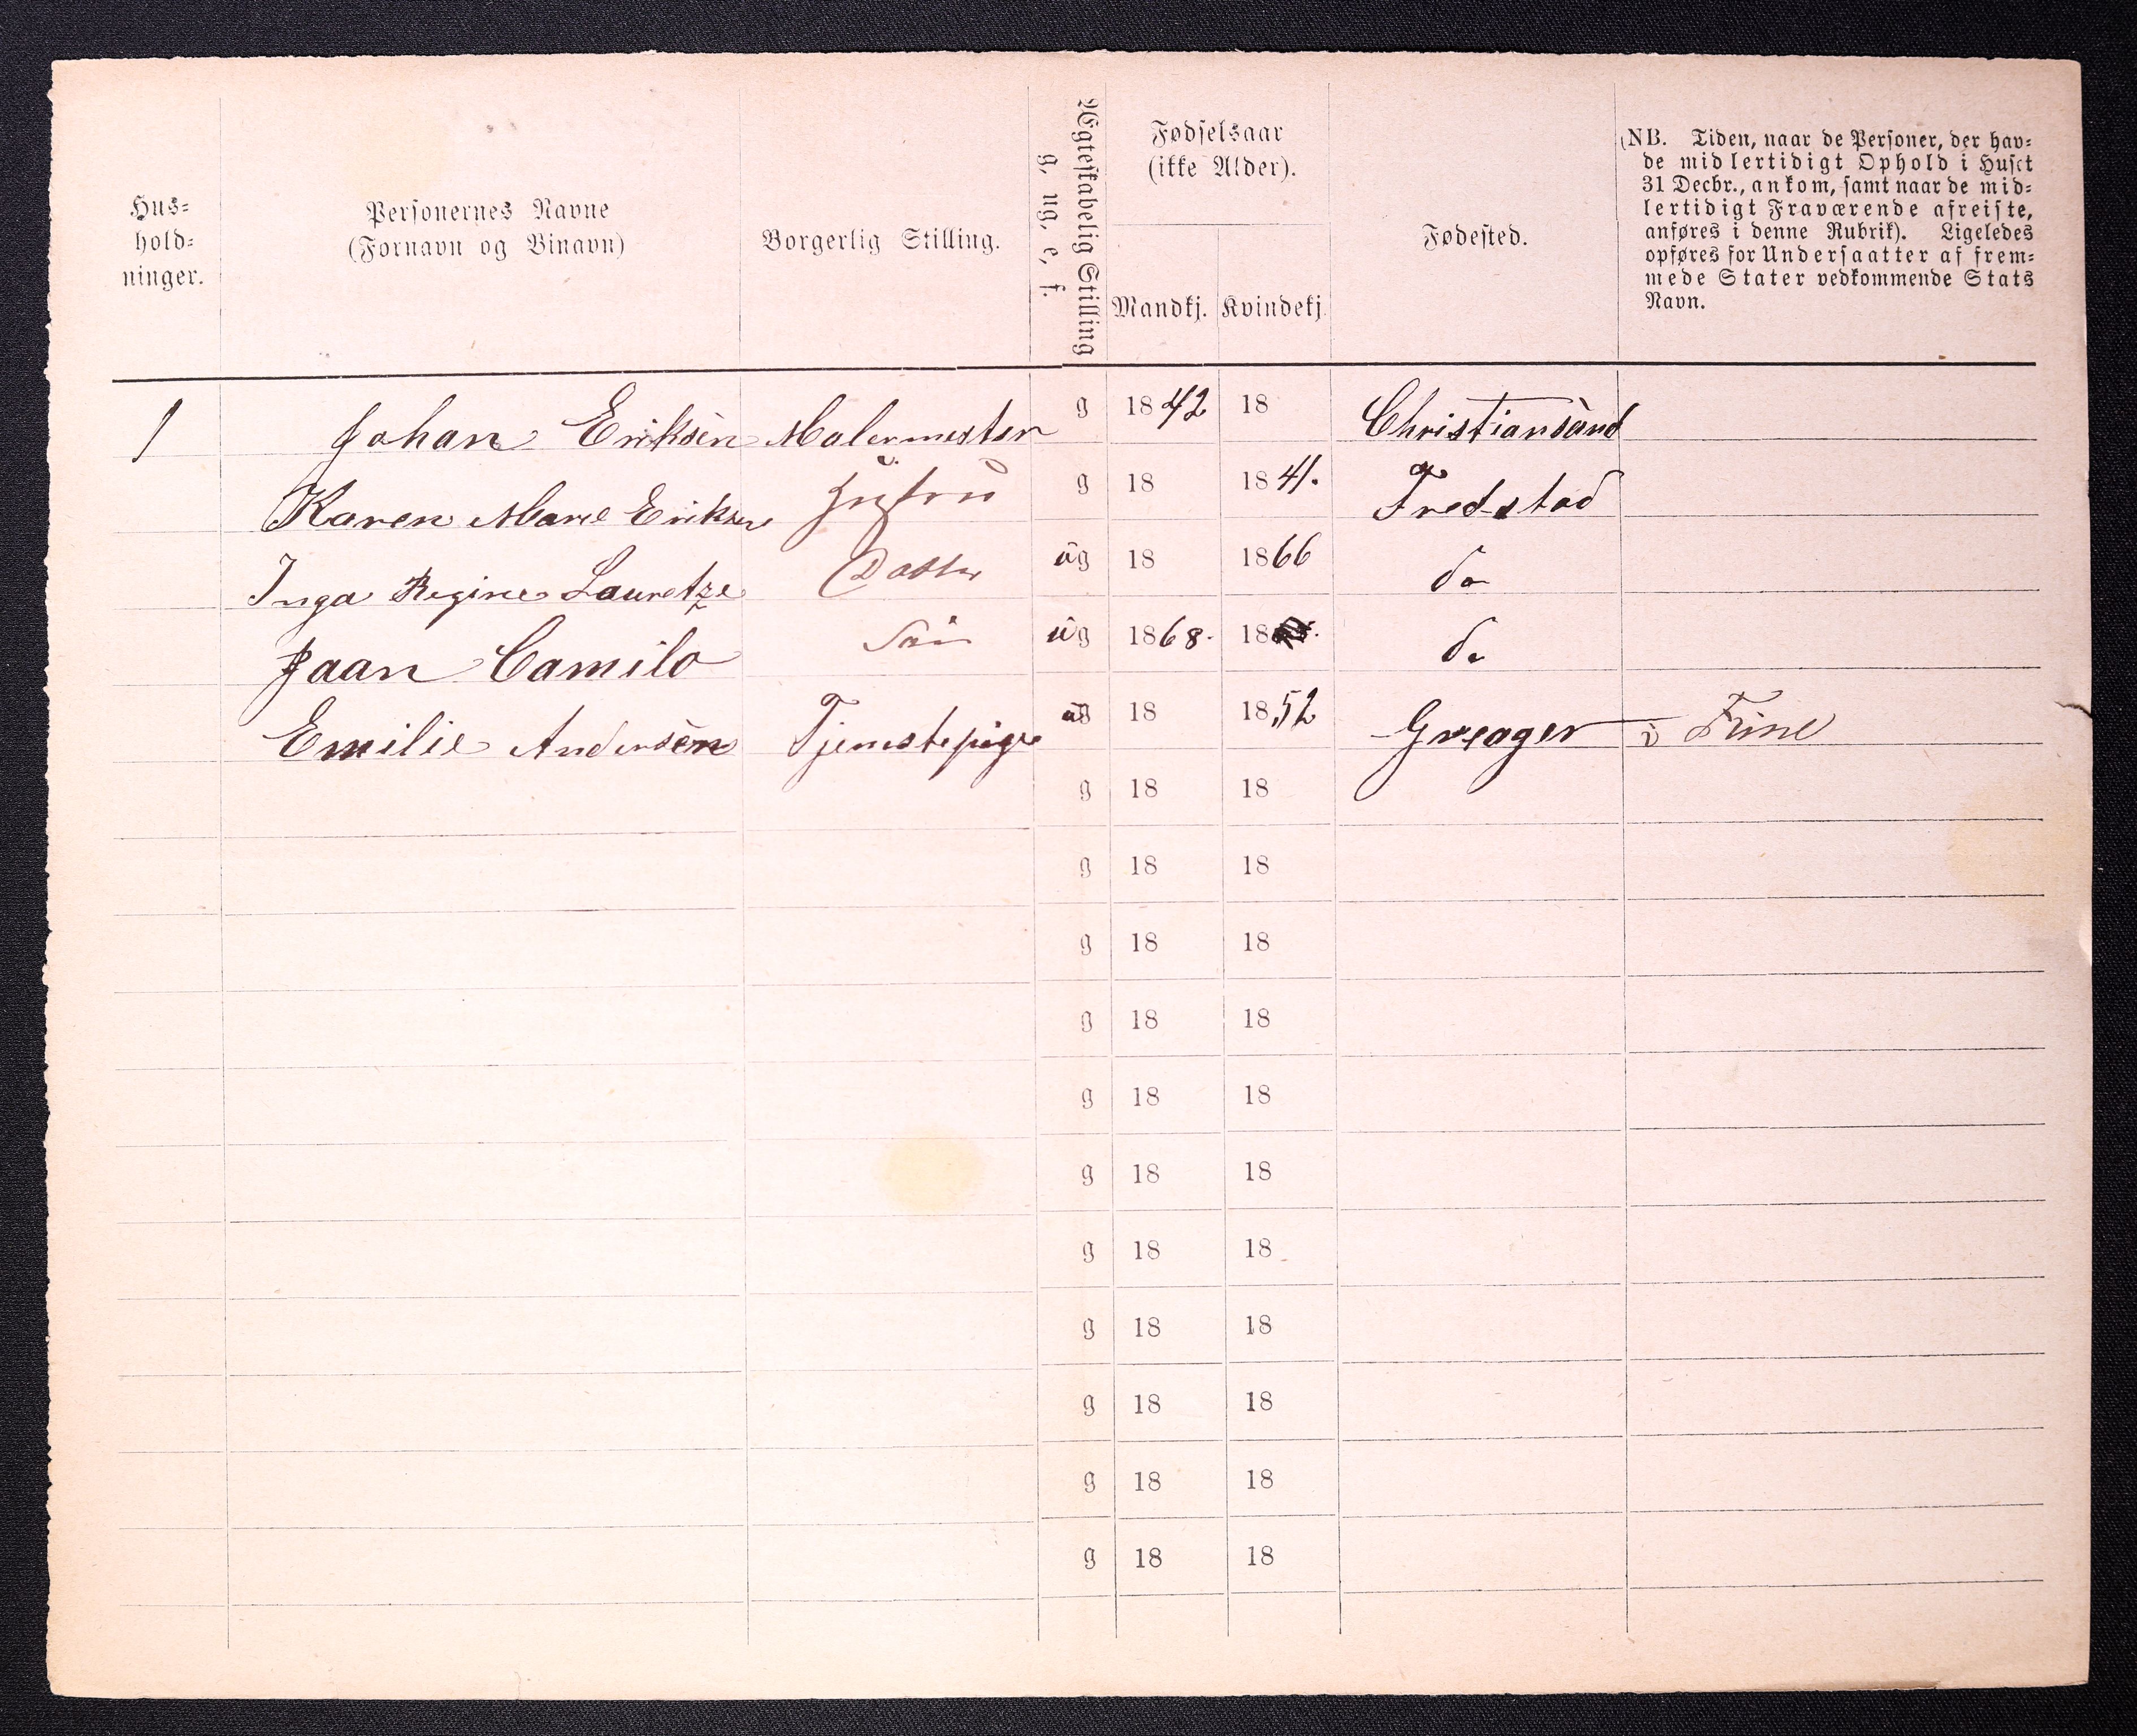 Hus=
hold=
ninger.
Personernes Navne
(Fornavn og Binavn)
Borgerlig Stilling.
Ægteskabelig Stilling
g, ug, e, f.
Fødselsaar
(ikke Alder).
Mandkj. Kvindekj.
Fødested.
(NB. Tiden, naar de Personer, der hav=
de midlertidigt Ophold i Huset
31 Decbr., ankom, samt naar de mid=
lertidigt Fraværende afreiste,
anføres i denne Rubrik). Ligeledes
opføres for Undersaatter af frem=
mede Stater vedkommende Stats
Navn.
1 Johan Eriksen Malermester g 1842 18 Christiansand
Karen Marie Eriksen Hustru g 18 1841. Fredstad
Inga Regine Lauretze Datter ug 18 1866 do
Jaan Camilo Søn ug 1868. 18 do
Emilie Andersen Tjenstepige ug 18 1852 Greager i
g 18 18
g 18 18
g 18 18
g 18 18
g 18 18
g 18 18
g 18 18
g 18 18
g 18 18
g 18 18
g 18 18